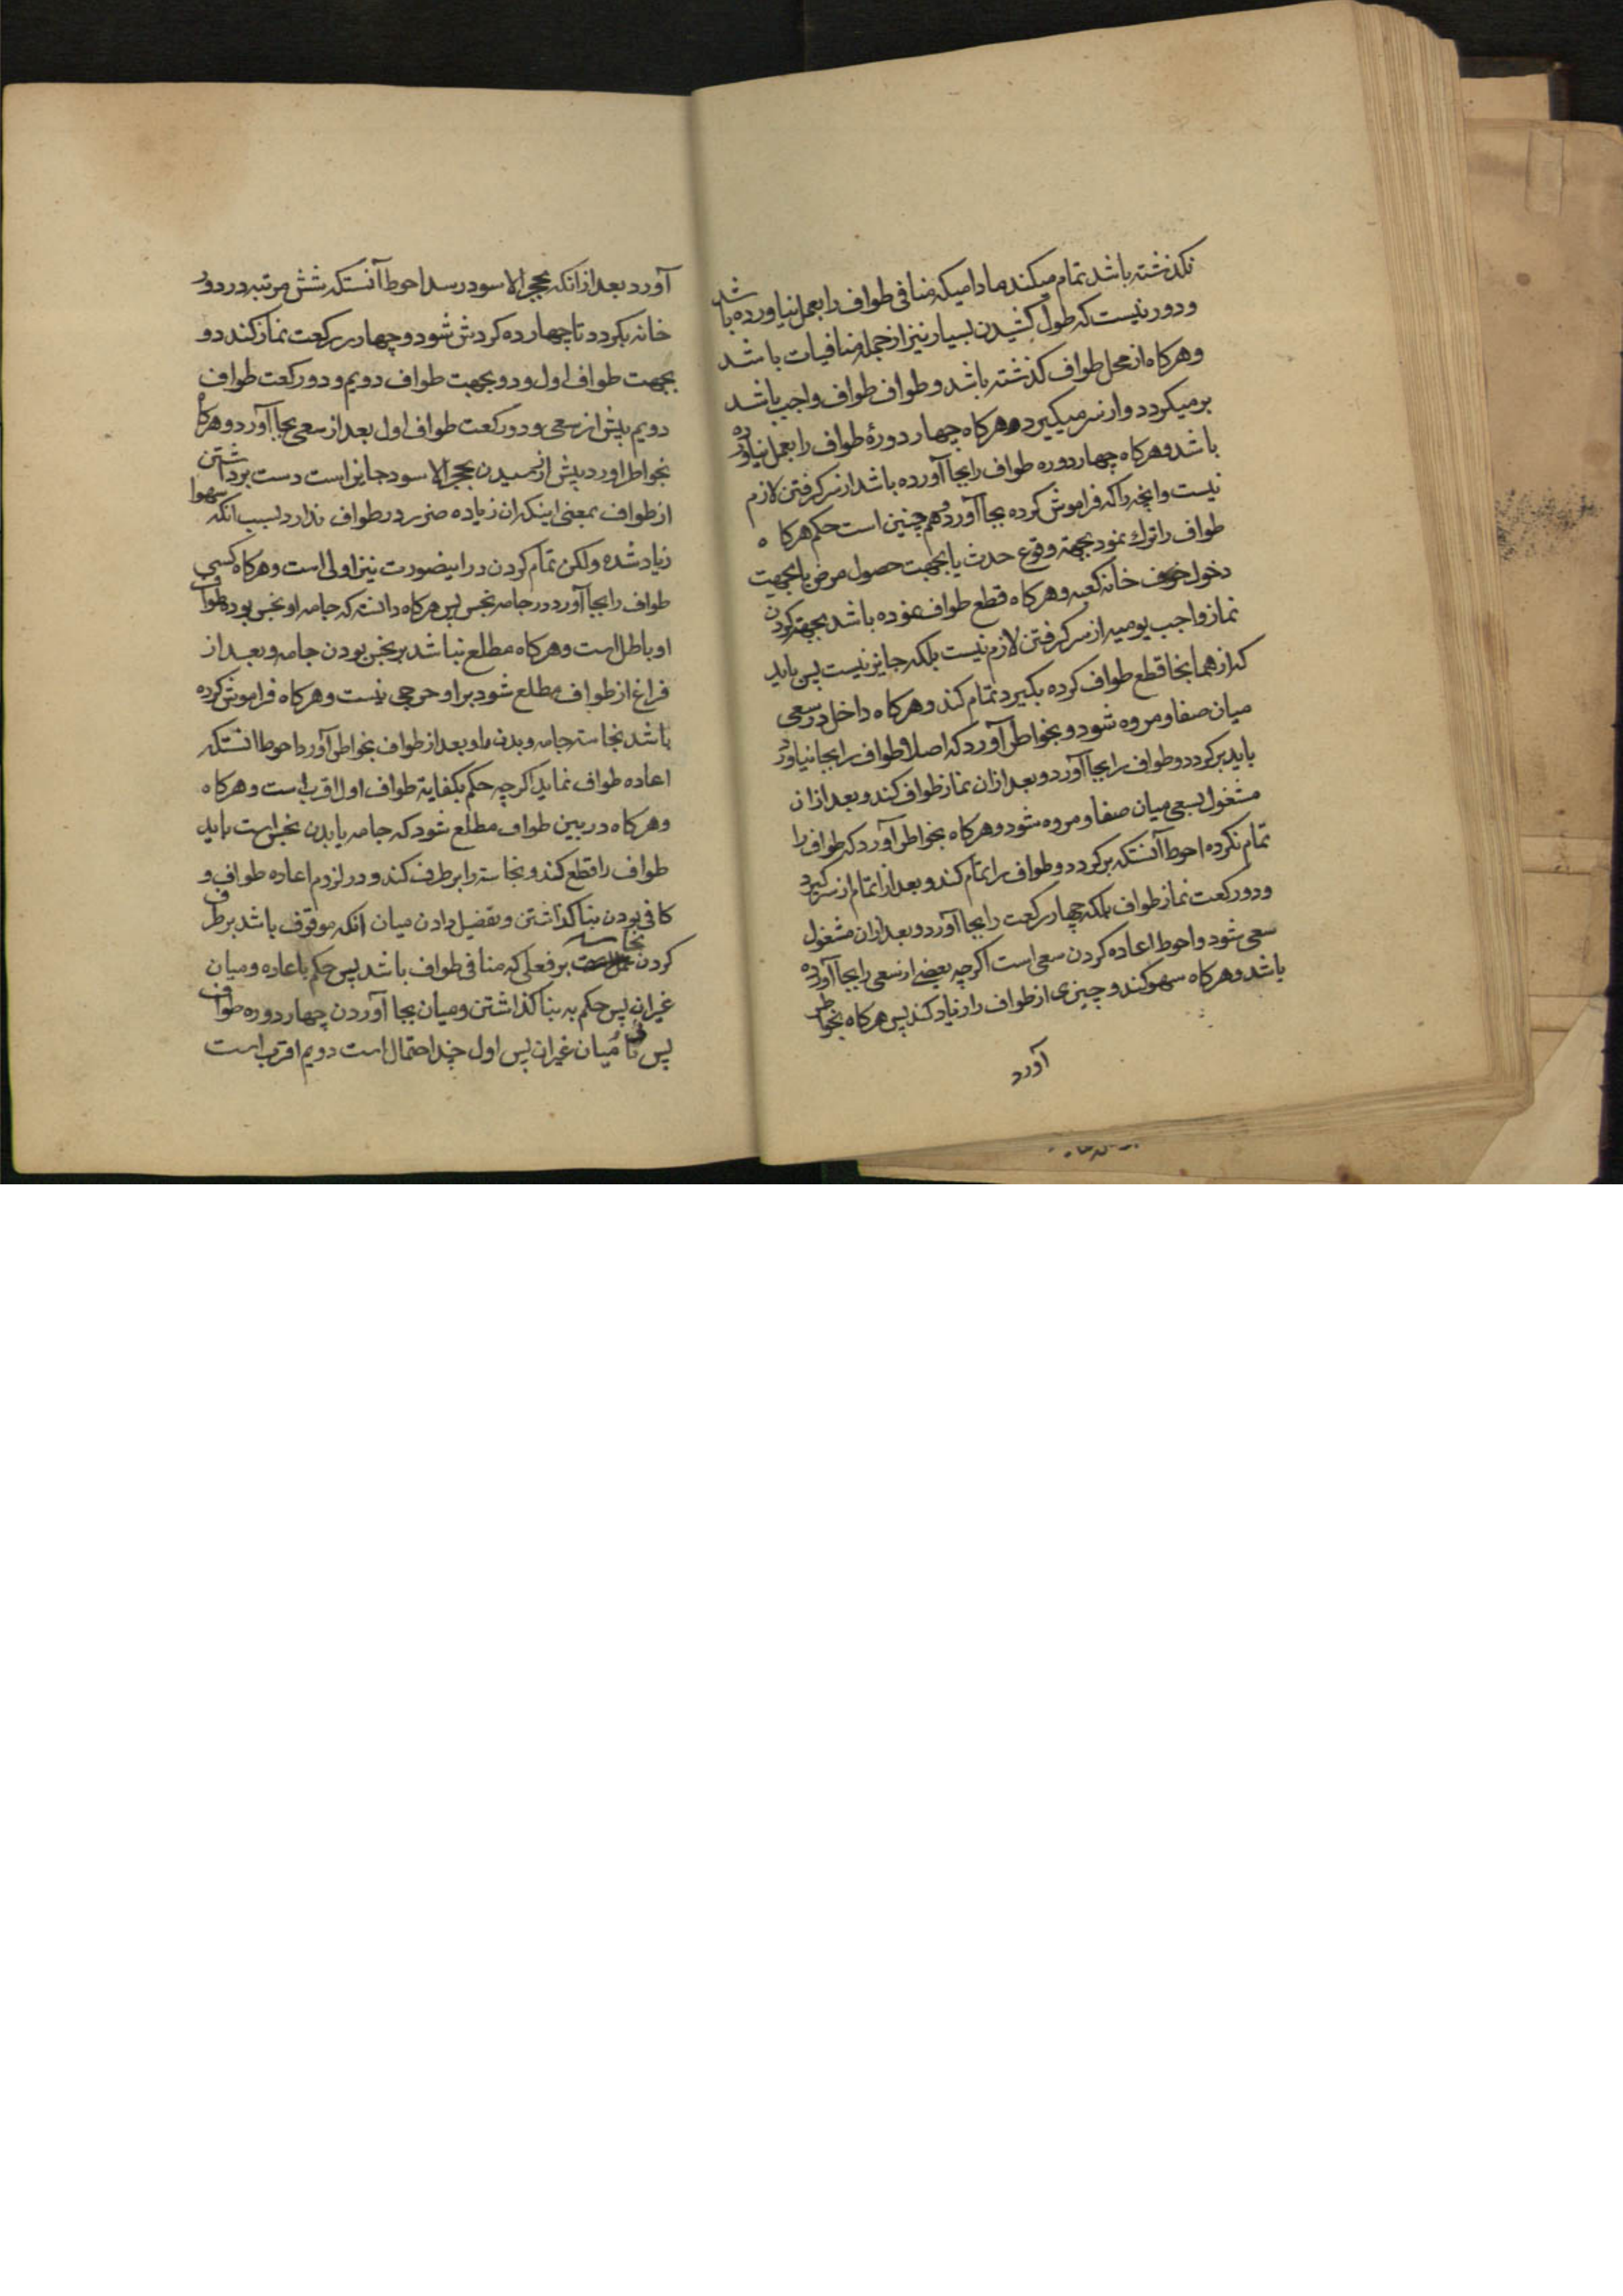 نکذشته باشد تمام میکند مادامیکه منافی طواف را بعمل نیاورده باشد
ودور نیست که طول کشیدن بسیار نیز از جمله منافیات باشد
وهرکاه از محل طواف کذشته باشد و طواف طواف واجب باشد
برمیکردد و از سر میکیرد وهرکاه چهار دورهٔ طواف را بعمل نیاورده
باشد وهرکاه چهار دوره طواف را بجا آورده باشد از سر کرفتن لازم
نیست و انچه را که فراموش کرده بجا آورد و هم چنین است حکم هرکاه
طواف را ترك نمود بجهة وقوع حدث یا بجهت حصول مرض یا بجهت
دخول جوف خانه کعبه وهرکاه قطع طواف نموده باشد بجهة کردن
نماز واجب یومیه از سر کرفتن لازم نیست بلکه جایز نیست پس باید
که از همانجا قطع طواف کرده بکیرد تمام کند وهرکاه داخل در سعی
میان صفا و مروه شود و بخواطر آورد که اصلا طواف را بجا نیاورد
باید برکردد و طواف را بجا آورد و بعد ازان نماز طواف کند و بعد ازان
مشغول بسعی میان صفا و مروه شود وهرکاه بخواطر آورد که طواف را
تمام نکرده احوط آنستکه برکردد و طواف را تمام کند و بعد از اتمام از سر کیرد
ودو رکعت نماز طواف بلکه چهار رکعت را بجا آورد و بعد ازان مشغول
سعی شود و احوط اعاده کردن سعی است اکرچه بعضی از سعی را بجا آورده
باشد وهرکاه سهو کند و چیزی از طواف را زیاد کند پس هرکاه بخواطر
آورد
آورد بعد از انکه بحجر الاسود رسد احوط آنستکه شش مرتبه در دور
خانه بکردد تا چهارده کردش شود و چهار رکعت نماز کند دو
بجهت طواف اول و دو بجهت طواف دویم و دو رکعت طواف
دویم پیش از سعی و دو رکعت طواف اول بعد از سعی بجا آورد وهرکاه
بخواطر اورد پیش از رسیدن بحجر الاسود جایز است دست برداشتن
از طواف بمعنی اینکه ان زیاده ضرر در طواف ندارد بسبب انکه سهوا
زیاد شده ولکن تمام کردن در اینصورت نیز اولی است وهرکاه کسی
طواف را بجا آورد در جامه نجس پس هرکاه دانسته که جامه او نجس بود طواف
او باطل است وهرکاه مطلع نباشد بر نجس بودن جامه و بعد از
فراغ از طواف مطلع شود بر او حرجی نیست وهرکاه فراموش کرده
باشد نجاسة جامه و بدن را و بعد از طواف بخواطر آورد احوط انستکه
اعاده طواف نماید اکرچه حکم بکفایة طواف اول اقرب است وهرکاه
وهرکاه در بین طواف مطلع شود که جامه یا بدن نجس است باید
طواف را قطع کند و نجاسة را بر طرف کند و در لزوم اعاده طواف و
کافی بودن بنا کذاشتن و تفضیل دادن میان انکه موقوف باشد بر طرف
کردن نجاسة بر فعلی که منافی طواف باشد پس حکم باعاده و میان
غیر ان پس حکم به بنا کذاشتن و میان بجا آوردن چهار دوره طواف
پس میان غیر ان پس اول چند احتمال است دویم اقرب است